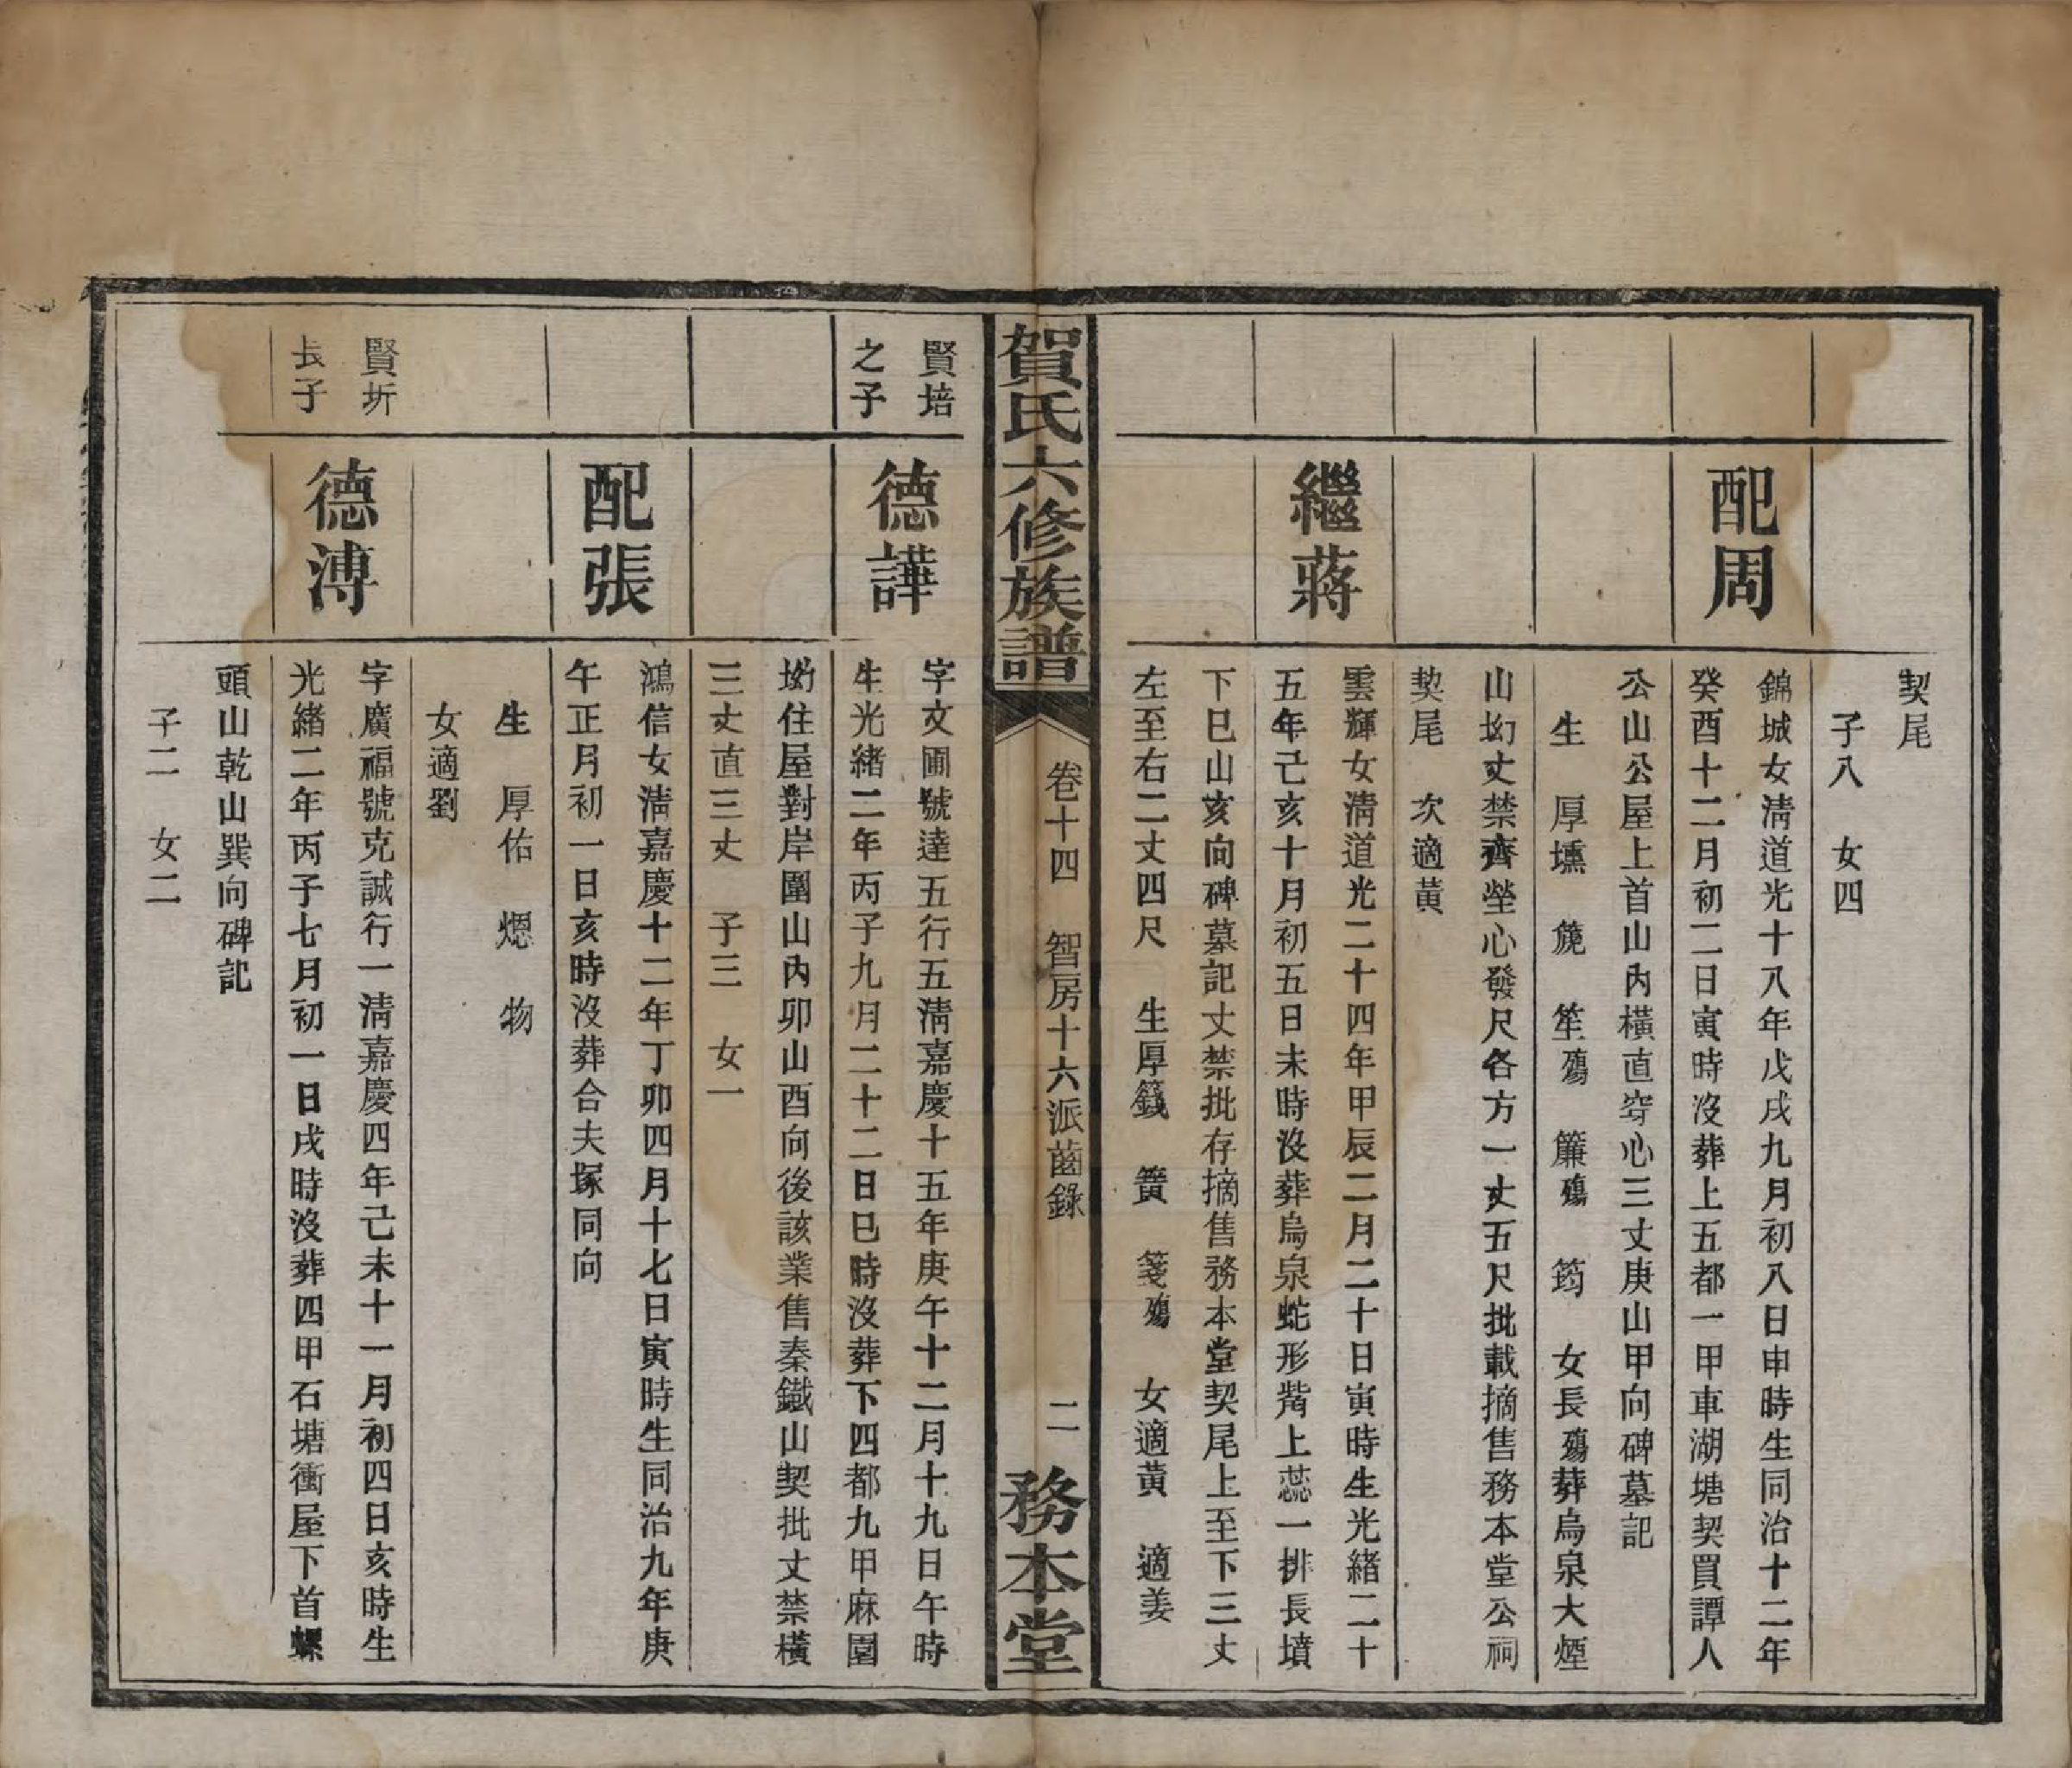 契尾
子八　女四
配周
錦城女清道光十八年戊戌九月初八日申時生同治十二年
癸酉十二月初二日寅時沒葬上五都一甲車湖塘契買譚人
公山公屋上首山內橫直穿心三丈庚山甲向碑墓記
生　厚壎　篪　笙殤　簾殤　筠　女長殤葬烏泉大煙
山坳丈禁齊塋心發尺各方一丈五尺批載摘售務本堂公祠
契尾　次適黃
繼蔣
雲輝女清道光二十四年甲辰二月二十日寅時生光緒二十
五年己亥十月初五日未時沒葬烏泉蛇形觜上蕊一排長墳
下巳山亥向碑墓記丈禁批存摘售務本堂契尾上至下三丈
左至右二丈四尺　生厚籛　簧　箋殤　女適黃　適姜
賀氏六修族譜
卷十四　智房十六派齒錄
二
務本堂
賢培
之子
德譁
字文圃號達五行五清嘉慶十五年庚午十二月十九日午時
生光緒二年丙子九月二十二日巳時沒葬下四都九甲麻園
坳住屋對岸圍山內卯山酉向後該業售秦鐵山契批丈禁橫
三丈直三丈　子三　女一
配張
鴻信女清嘉慶十二年丁卯四月十七日寅時生同治九年庚
午正月初一日亥時沒葬合夫塚同向
生　厚佑　煾　物
女適劉
賢圻
長子
德溥
字廣福號克誠行一清嘉慶四年己未十一月初四日亥時生
光緒二年丙子七月初一日戌時沒葬四甲石塘衝屋下首螺
頭山乾山巽向碑記
子二　女二